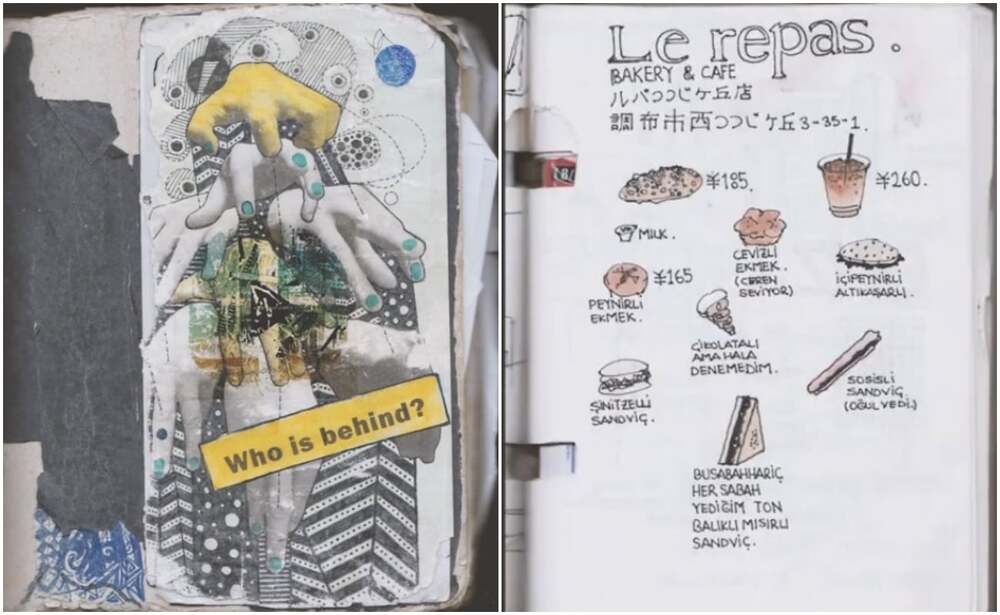 Who is behind?
Le repas.
BAKERY & CAFE
ルパつつじケ丘店
調布市西つつじケ丘3-35-1.
¥185.
¥260.
MILK.
CEVİZLİ
EKMEK.
(CEREN
SEVİYOR)
İÇİPEYNİRLİ
ALTIKAŞARLI.
¥165
PEYNİRLİ
EKMEK.
ÇİKOLATALI
AMA HALA
DENEMEDİM.
SOSİSLİ
SANDVİÇ
(OĞUL YEDİ.)
ŞİNİTZELLİ
SANDVİÇ.
BUSABAHHARİÇ
HER SABAH
YEDİĞİM TON
BALIKLI MISIRLI
SANDVİÇ.